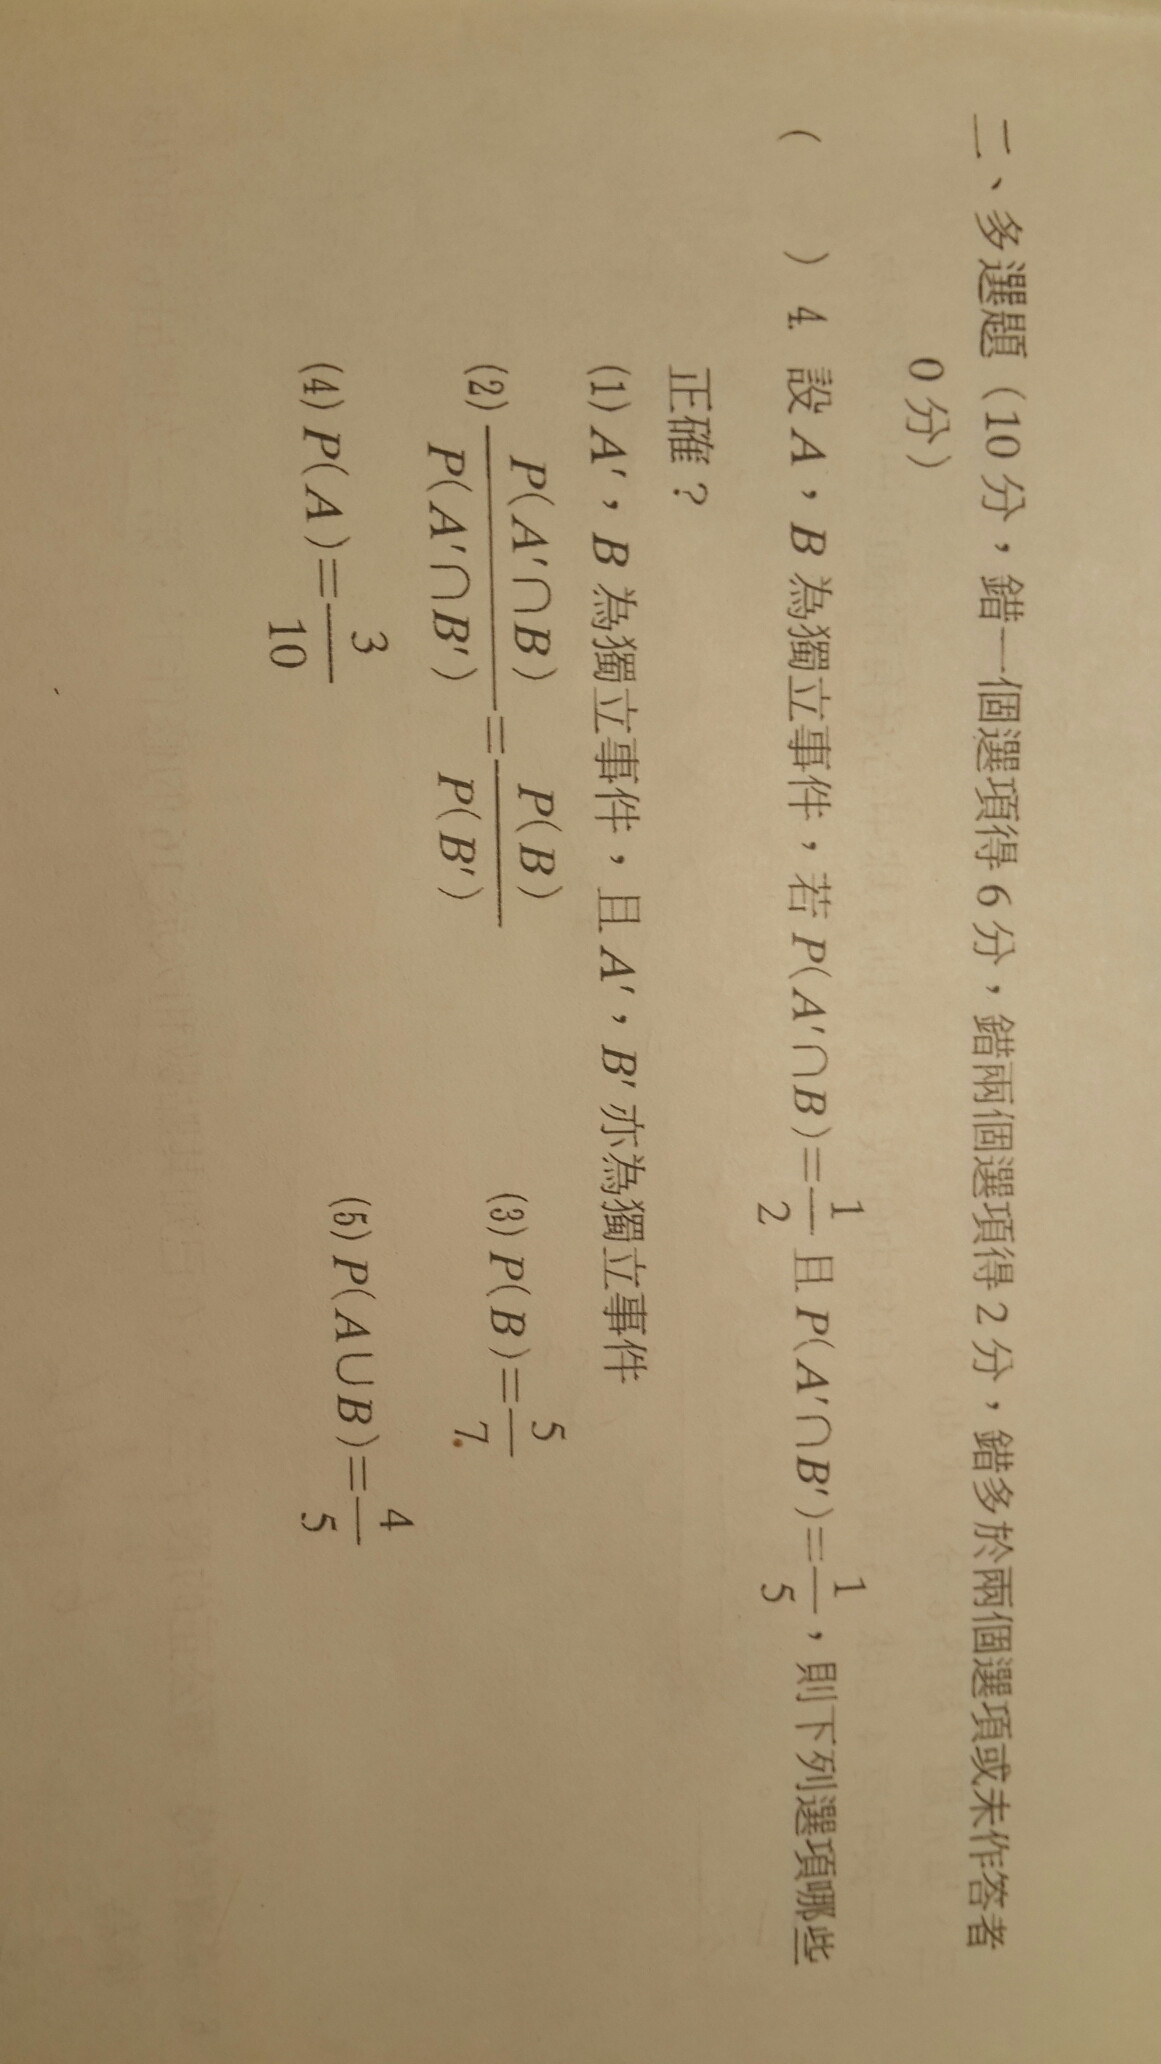 二、多選題（10分，錯一個選項得6分，錯兩個選項得2分，錯多於兩個選項或未作答者
0分）
（　　）4. 設A，B為獨立事件，若P(A'∩B)=1/2且P(A'∩B')=1/5，則下列選項哪些
正確？
(1) A'，B為獨立事件，且A'，B'亦為獨立事件
(2) P(A'∩B)/P(A'∩B')=P(B)/P(B')　(3) P(B)=5/7
(4) P(A)=3/10　(5) P(A∪B)=4/5